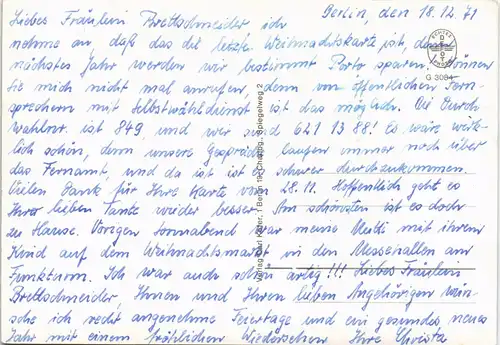 Berlin, den 18.12.71
Liebes Fräulein Brettschneider ich
nehme an, daß das die letzte Weihnachtskarte ist, denn
nächstes Jahr werden wir bestimmt Porto sparen. Können
Sie mich nicht mal anrufen, denn von öffentlichen Fern-
sprechern mit Selbstwähldienst ist das möglich. Die Durch
wahlnr. ist 849, und wir sind 621 13 88! Es wäre wirk-
lich schön, denn unsere Gespräche laufen immer noch über
das Fernamt, und da ist es schwer durchzukommen.
Vielen Dank für Ihre Karte vom 28.11. Hoffentlich geht es
Ihrer lieben Tante wieder besser. Am schönsten ist es doch
zu Hause. Vorigen Sonnabend war meine Mutti mit ihrem
Kind auf dem Weihnachtsmarkt in den Messehallen am
Funkturm. Ich war auch schön artig!!! Liebes Fräulein
Brettschneider, Ihnen und Ihren lieben Angehörigen wün-
sche ich recht angenehme Feiertage und ein gesundes neues
Jahr mit einem fröhlichen Wiedersehen Ihre Christa
G 3084
Verlag Kurt 1 Berlin 19, Spiegelweg 2